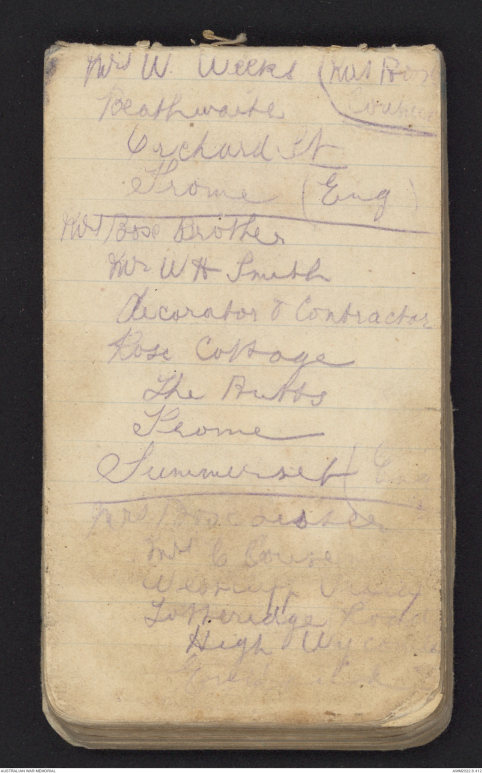 Mrs W. Weeks (Mrs Bose
Beathwaite
Orchard St
Frome (Eng)
Mrs Bose Brother
Mr W H Smith
decorator & Contractor
Rose Cottage
The Butts
Frome
Summerset (E
Mrs Bose sister
Mrs C
Totteridge Road
High Wy
AUSTRALIAN WAR MEMORIAL